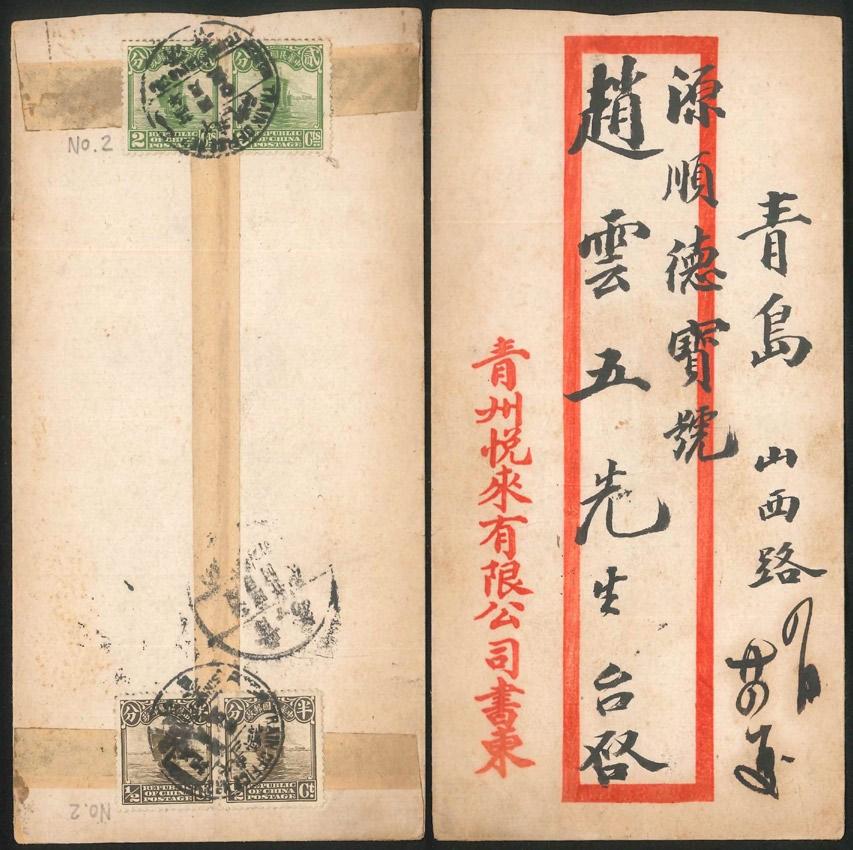 分 貳
2 REPUBLIC OF CHINA POSTAGE Cts
REPUBLIC OF CHINA POSTAGE Cts
No.2
TRAIN OFFICE
分 半
1/2 REPUBLIC OF CHINA POSTAGE
1/2 REPUBLIC OF CHINA POSTAGE Ct
No.2
青島 山西路
源順德寶號
趙雲五先生台啓
青州悅來有限公司書柬